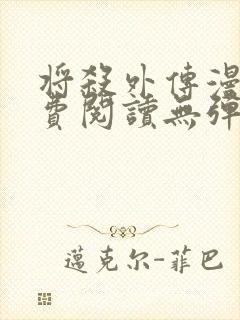 將殺外傳漫
費閱讀無彈
邁克尔-菲巴